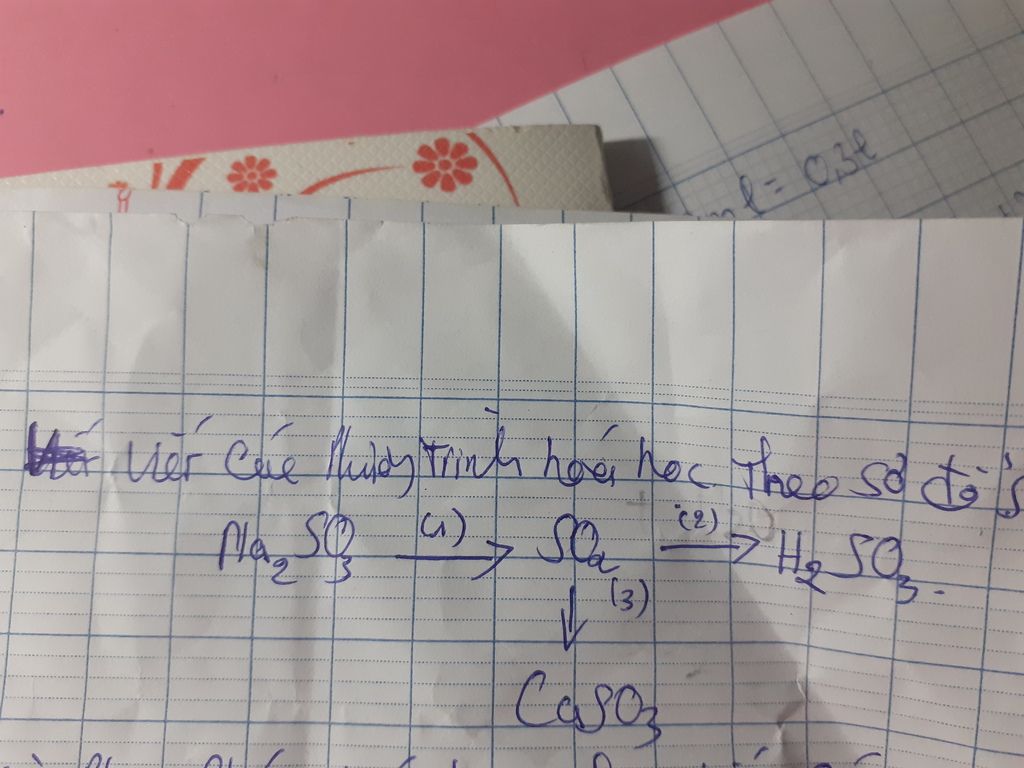 l = 0,3l
Viết các phương trình hoá học theo sơ đồ s
Na2SO3 (1) → SO2 (2) → H2SO3.
↓ (3)
CaSO3